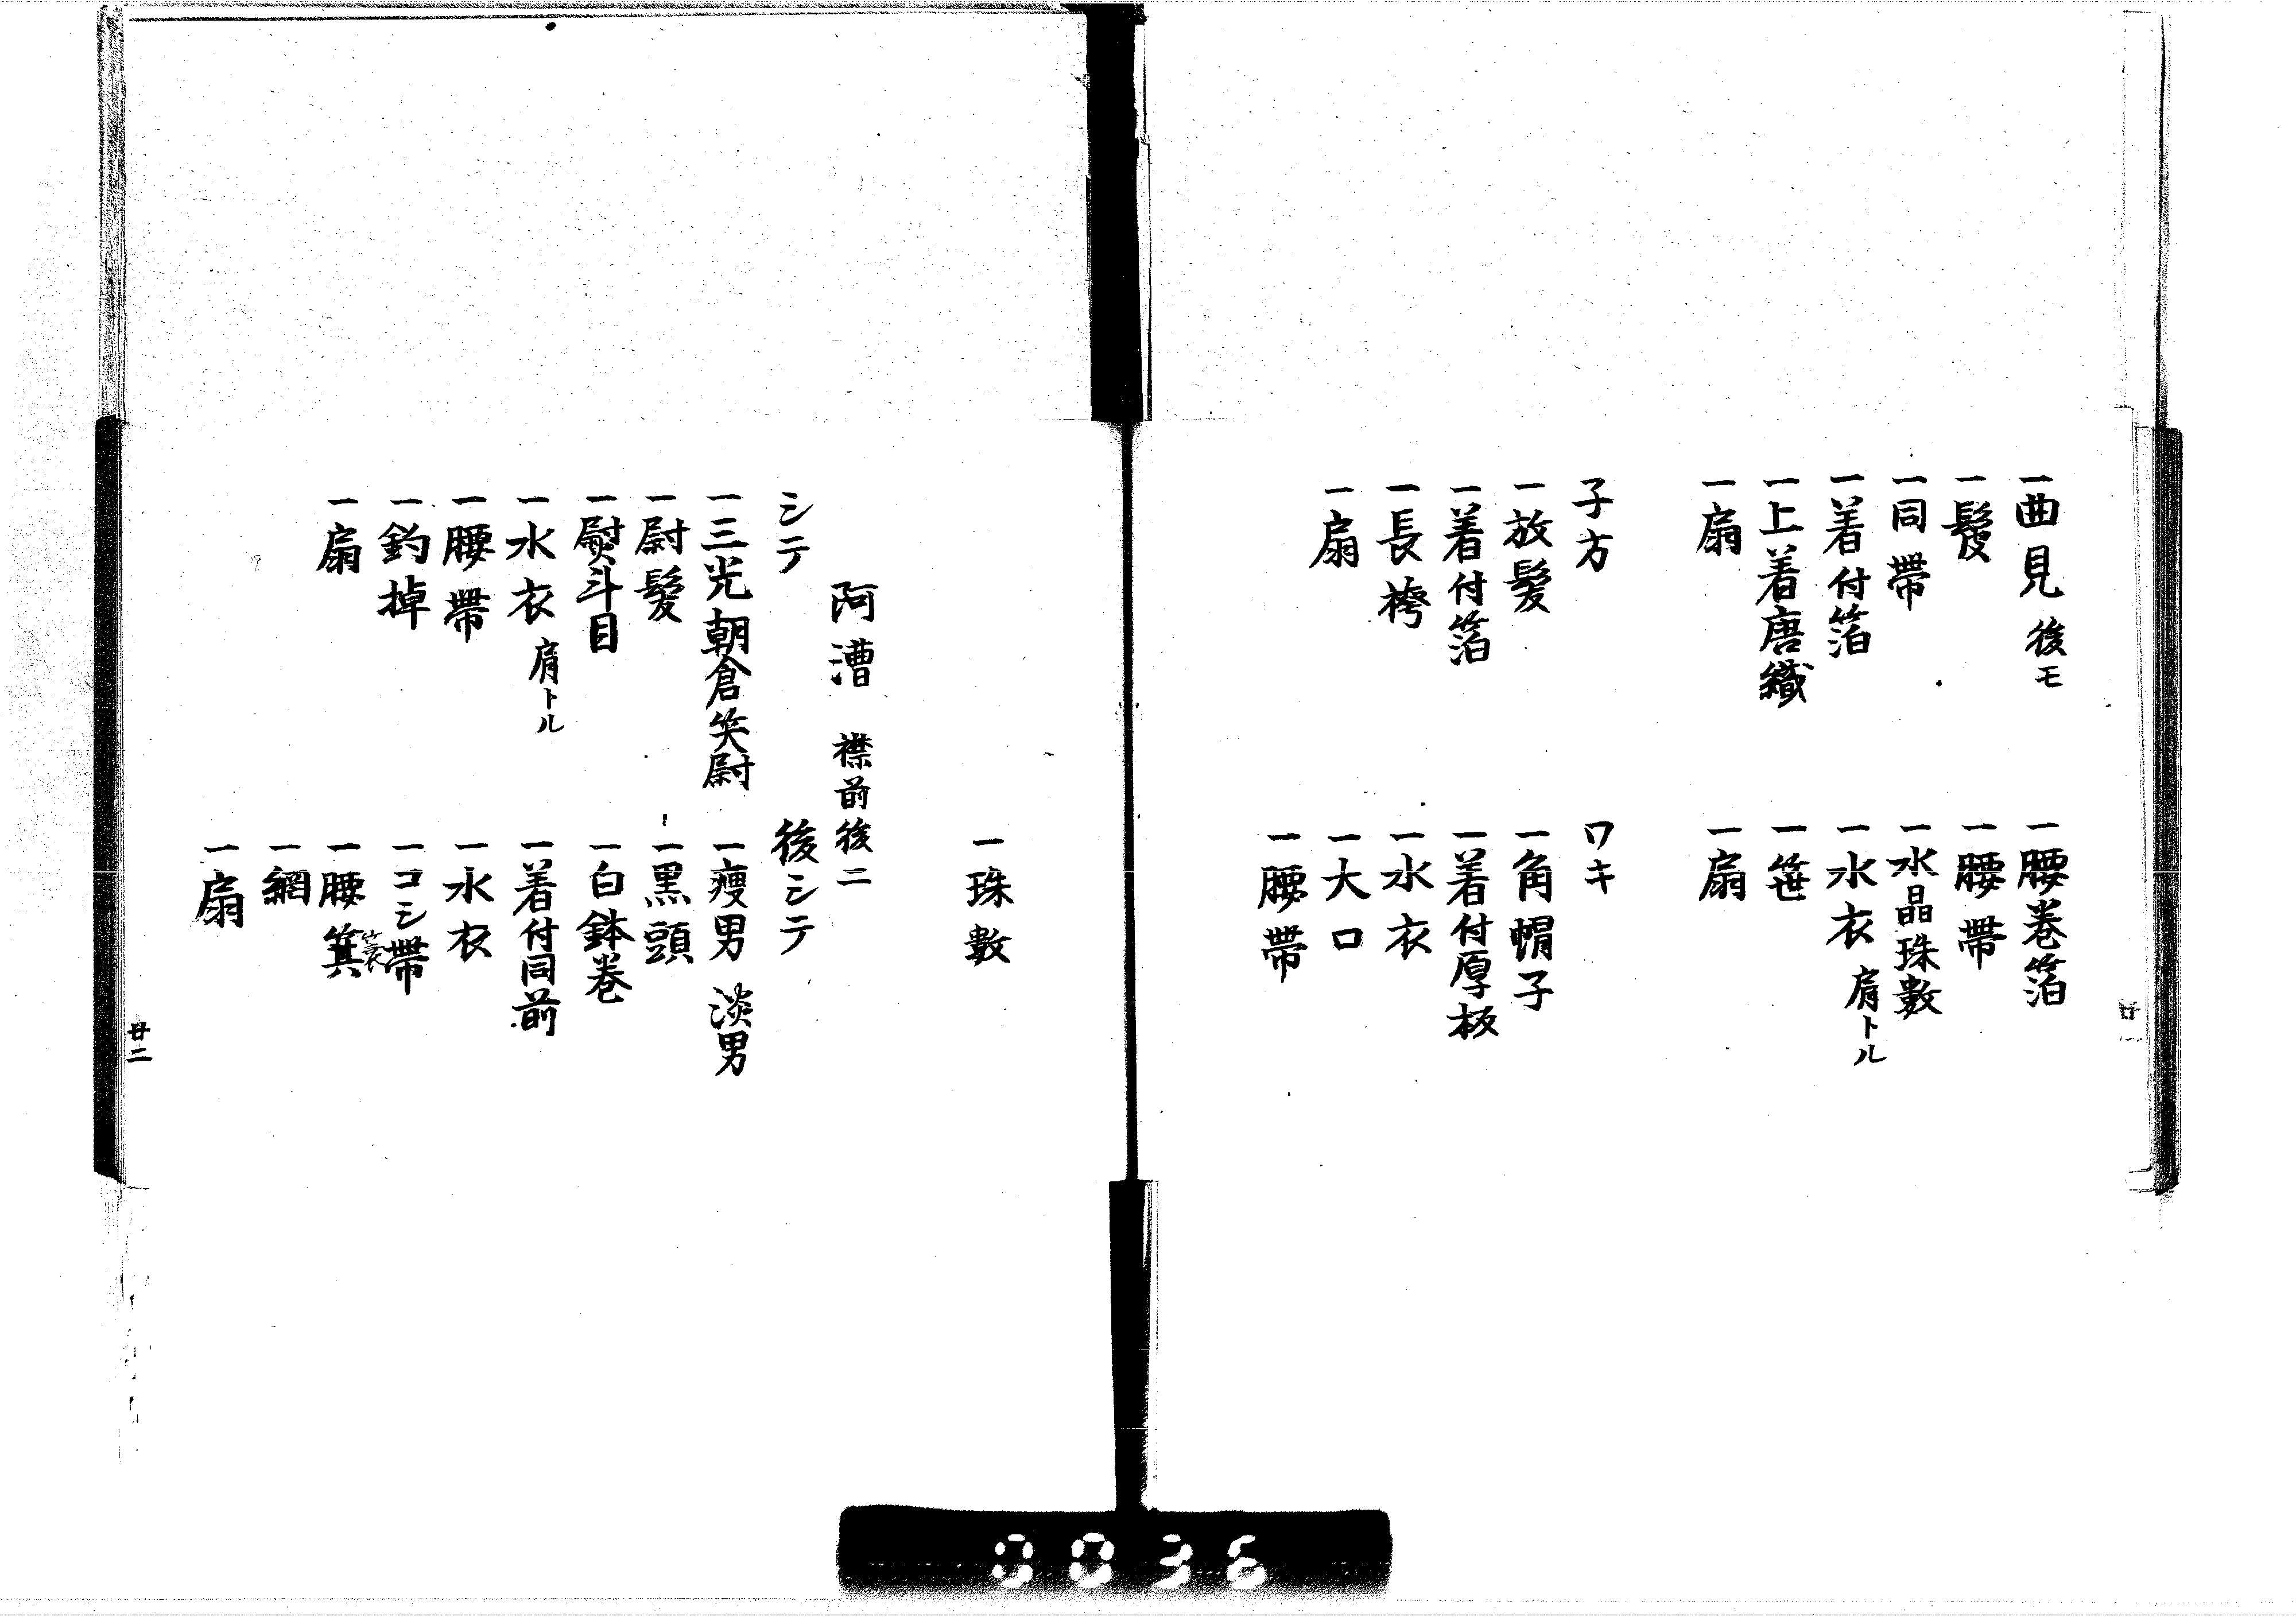 一曲見 後モ
一鬘
一同帶
一着付箔
一上着唐織
一扇
一腰巻箔
一腰帶
一水晶珠數
一水衣 肩トル
一笹
一扇
子方
一放髪
一着付箔
一長袴
一扇
ワキ
一角帽子
一着付厚板
一水衣
一大口
一腰帶
廿一
一珠數
阿漕 襟前後二
シテ
一三光朝倉笑尉
一尉髪
一熨斗目
一水衣 肩トル
一腰帶
一釣掉
一扇
後シテ
一痩男 淡男
一黒頭
一白鉢巻
一着付同前
一水衣
一コシ帶
一腰箕 蓑
一網
一扇
廿二
0036